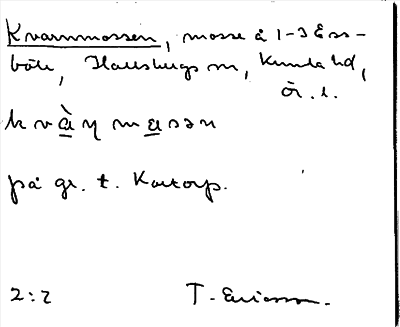 Kvarnmossen, mosse å 1-3 Ess-
böle, Hallsbergs sn, Kumla hd,
Ör. l.
kvàɳmasən
på gr. t. Kartorp.
2:2 T. Ericsson.